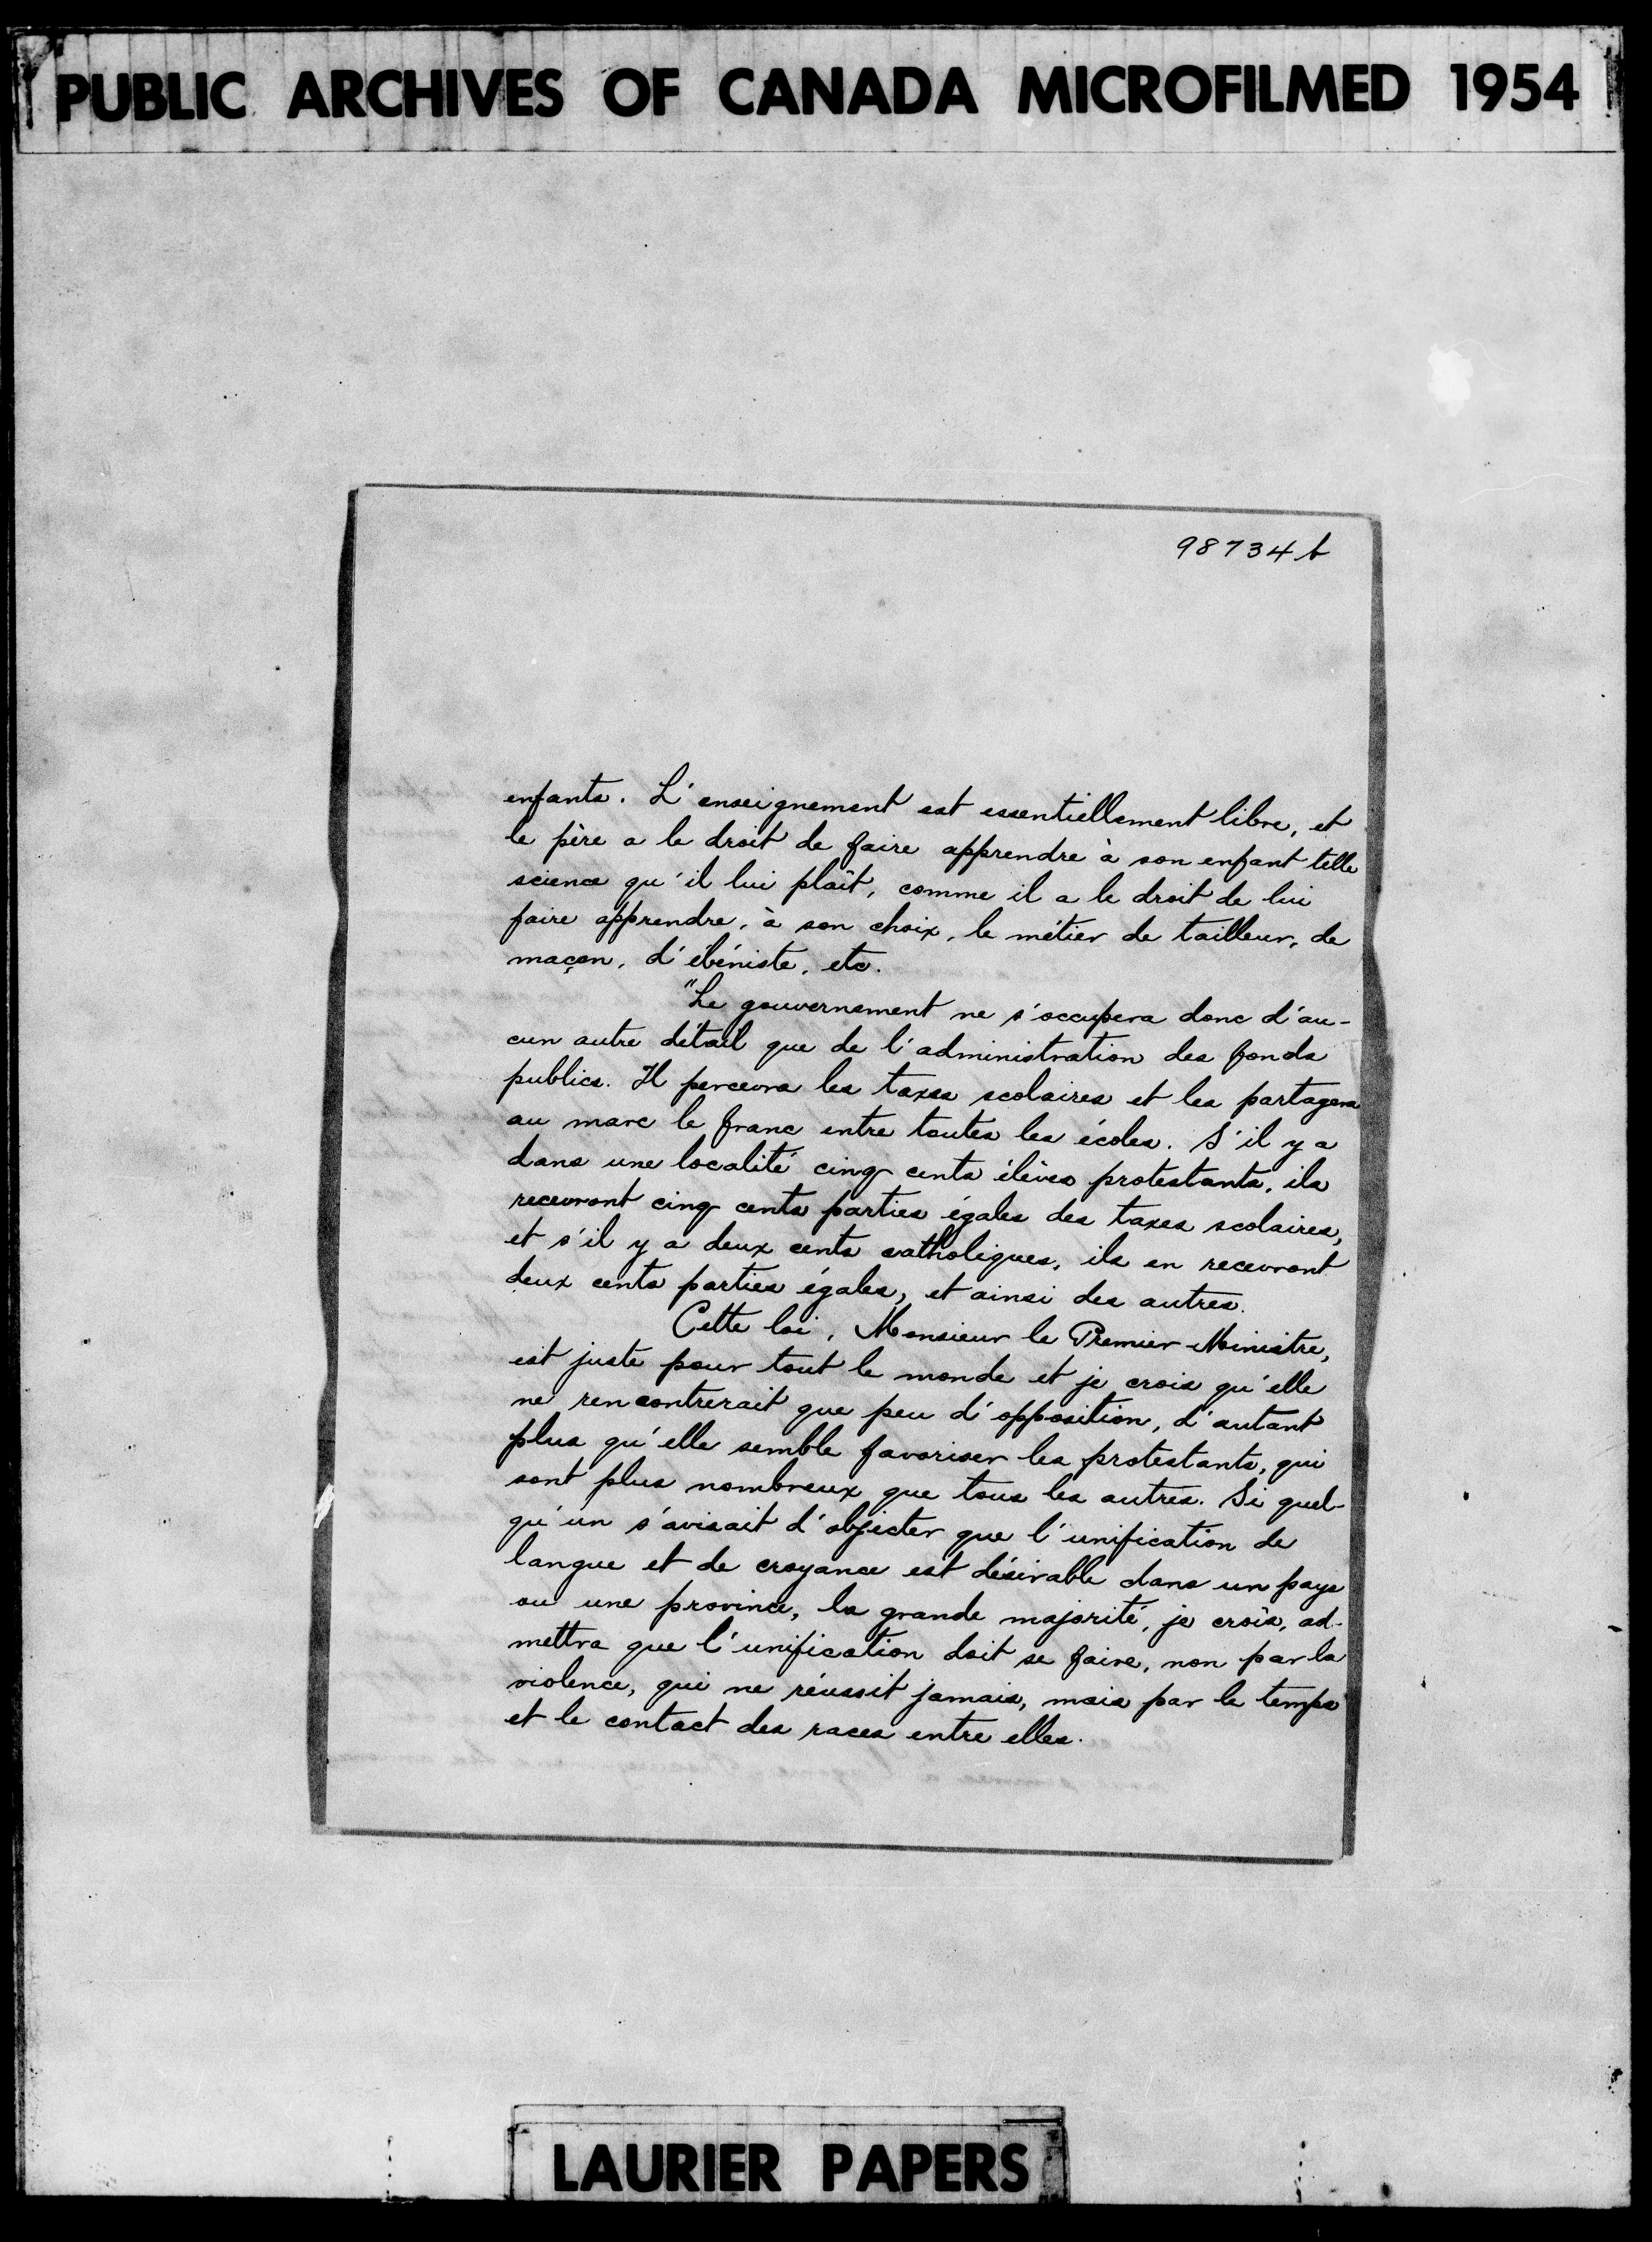 PUBLIC ARCHIVES OF CANADA MICROFILMED 1954
98734 b
enfants. L'enseignement est essentiellement libre, et
le père a le droit de faire apprendre à son enfant telle
science qu'il lui plaît, comme il a le droit de lui
faire apprendre, à son choix, le métier de tailleur, de
maçon, d'ébéniste, etc.
"Le gouvernement ne s'occupera donc d'au-
cun autre détail que de l'administration des fonds
publics. Il percevra les taxes scolaires et les partagera
au marc le franc entre toutes les écoles. S'il y a
dans une localité cinq cents élèves protestants, ils
recevront cinq cents parties égales des taxes scolaires,
et s'il y a deux cents catholiques, ils en recevront
deux cents parties égales, et ainsi des autres.
Cette loi, Monsieur le Premier Ministre,
est juste pour tout le monde et je crois qu'elle
ne rencontrerait que peu d'opposition, d'autant
plus qu'elle semble favoriser les protestants, qui
sont plus nombreux que tous les autres. Si quel-
qu'un s'avisait d'objecter que l'unification de
langue et de croyance est désirable dans un pays
ou une province, la grande majorité, je crois, ad-
mettra que l'unification doit se faire, non par la
violence, qui ne réussit jamais, mais par le temps
et le contact des races entre elles.
LAURIER PAPERS